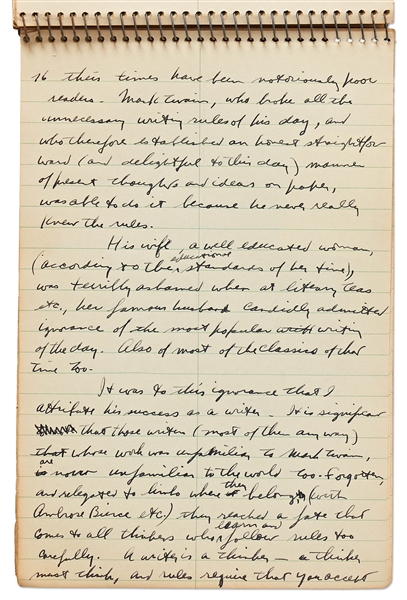 16 their times have been notoriously poor
readers. Mark Twain, who broke all the
unnecessary writing rules of his day, and
who therefore established an honest straightfor
ward (and delightful to this day) manner
of present thoughts and ideas on paper,
was able to do it because he never really
knew the rules.
His wife, a well educated woman,
(according to the educational standards of her time),
was terribly ashamed when at literary teas
etc., her famous husband candidly admitted
ignorance of the most popular writing
of the day. Also of most of the classics of that
time too.
It was to this ignorance that I
attribute his success as a writer. It is significan
that those writers (most of them any way)
that whose work was unfamiliar to Mark Twain,
are now unfamiliar to the world too. Forgotten,
and relegated to limbo where they belong, (with
Ambrose Bierce etc.) they reached a fate that
comes to all thinkers who learn and follow rules too
carefully. A writer is a thinker — a thinker
must think, and rules require that you accept